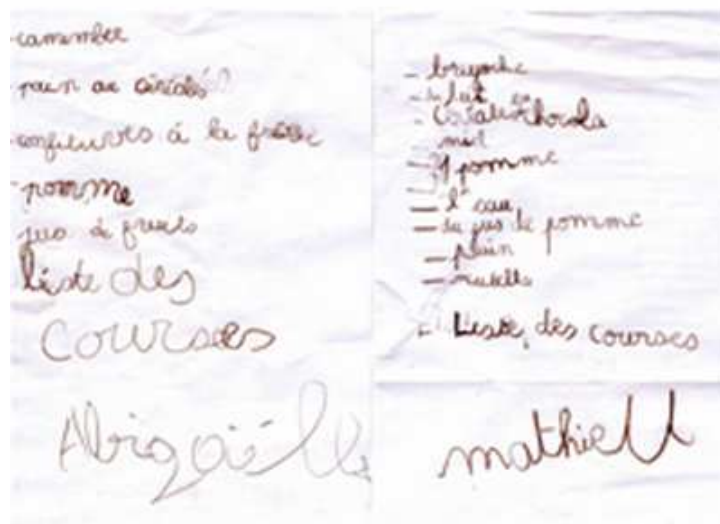 -camember
-pain au céréales
-confitures à la fraise
-pomme
jus de fruits
liste des
courses
Abigaëlle
- brioche
- du lait
chocola
miel
- 4 pomme
- l'eau
- du jus de pomme
- plain
- nutella
- Liste des courses
mathieU